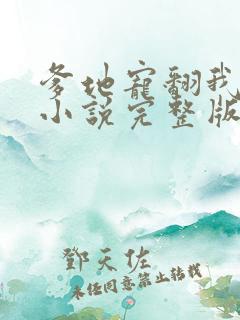 爹地寵翻我
小說完整版
鄧天佐
未經同意禁止轉載